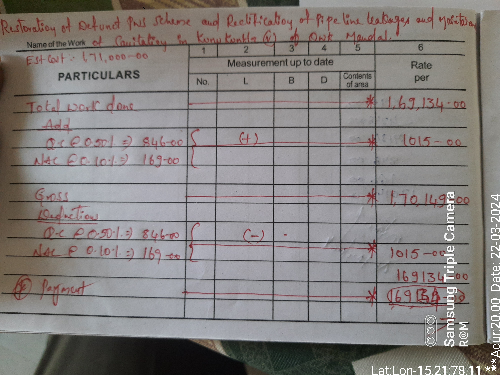 Restoration of Defund PWS Scheme and Rectification of Pipe line leakages and Monitoring
Name of the Work of Sanitation in Kanukuntla (v) of Mandal.
Est Cost - 1,71,000-00
PARTICULARS
1 2 3 4 5 6
Measurement up to date
No. L B D Contents of area
Rate per
Total work done 1,69,134.00
Add
Qc @ 0.50% => 846-00 (+) 1015-00
NAC @ 0.10% => 169-00
Gross 1,70,149-00
Deduction
Qc @ 0.50% => 846-00 (-)
NAC @ 0.10% => 169-00 1015-00
169134-00
Payment
Samsung Triple Camera
R@M
***Acur:20.00, Date: 22-03-2024
Lat:Lon-15.21:79.11